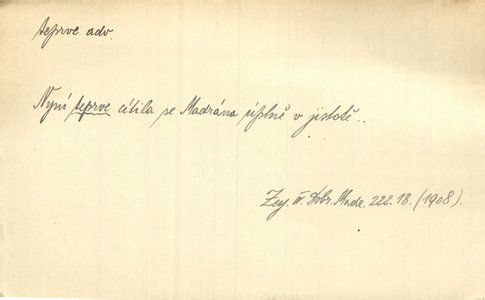 teprve adv.
Nyní teprve cítila se Madrána úplně v jistotě..
Zey. IV. Dobr. Madr. 222. 18. (1908).